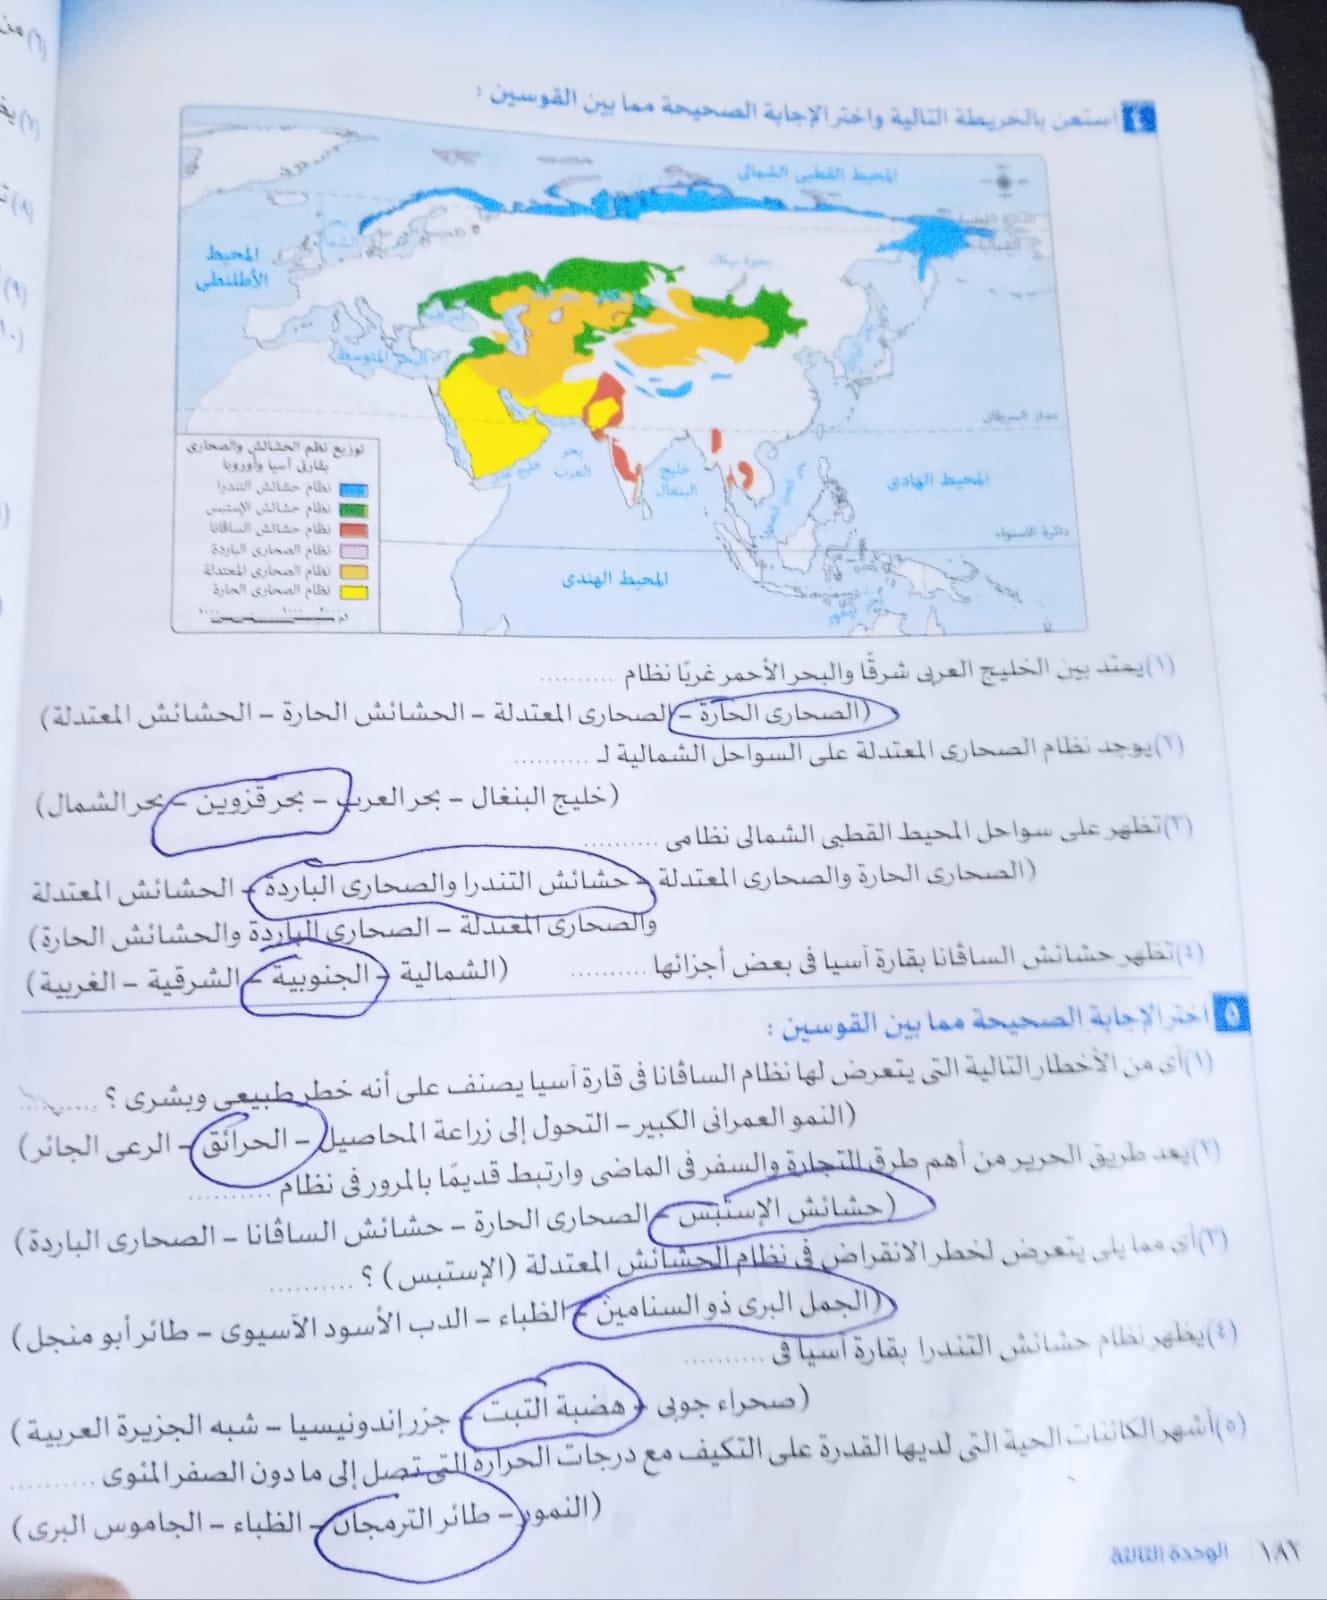 ٤ استعن بالخريطة التالية واختر الإجابة الصحيحة مما بين القوسين :
المحيط القطبى الشمالى
المحيط الأطلنطى
بحر الشمال
بحيرة بيكال
البحر المتوسط
مدار السرطان
بحر العرب
خليج عدن
خليج البنغال
المحيط الهادى
دائرة الاستواء
المحيط الهندى
توزيع نظم الحشائش والصحارى
بقارتى آسيا وأوروبا
نظام حشائش التندرا
نظام حشائش الإستبس
نظام حشائش الساڤانا
نظام الصحارى الباردة
نظام الصحارى المعتدلة
نظام الصحارى الحارة
(١) يمتد بين الخليج العربى شرقًا والبحر الأحمر غربًا نظام ..........
(الصحارى الحارة – الصحارى المعتدلة – الحشائش الحارة – الحشائش المعتدلة)
(٢) يوجد نظام الصحارى المعتدلة على السواحل الشمالية لـ ..........
(خليج البنغال – بحر العرب – بحر قزوين – بحر الشمال)
(٣) تظهر على سواحل المحيط القطبى الشمالى نظامى ..........
(الصحارى الحارة والصحارى المعتدلة – حشائش التندرا والصحارى الباردة – الحشائش المعتدلة
والصحارى المعتدلة – الصحارى الباردة والحشائش الحارة)
(٤) تظهر حشائش الساڤانا بقارة آسيا فى بعض أجزائها .......... (الشمالية – الجنوبية – الشرقية – الغربية)
٥ اختر الإجابة الصحيحة مما بين القوسين :
(١) أى من الأخطار التالية التى يتعرض لها نظام الساڤانا فى قارة آسيا يصنف على أنه خطر طبيعى وبشرى ؟ ..........
(النمو العمرانى الكبير – التحول إلى زراعة المحاصيل – الحرائق – الرعى الجائر)
(٢) يعد طريق الحرير من أهم طرق التجارة والسفر فى الماضى وارتبط قديمًا بالمرور فى نظام ..........
(حشائش الإستبس – الصحارى الحارة – حشائش الساڤانا – الصحارى الباردة)
(٣) أى مما يلى يتعرض لخطر الانقراض فى نظام الحشائش المعتدلة (الإستبس) ؟ ..........
(الجمل البرى ذو السنامين – الظباء – الدب الأسود الآسيوى – طائر أبو منجل)
(٤) يظهر نظام حشائش التندرا بقارة آسيا فى ..........
(صحراء جوبى – هضبة التبت – جزر إندونيسيا – شبه الجزيرة العربية)
(٥) أشهر الكائنات الحية التى لديها القدرة على التكيف مع درجات الحرارة التى تصل إلى ما دون الصفر المئوى ..........
(النمور – طائر الترمجان – الظباء – الجاموس البرى)
١٨٢ الوحدة الثالثة